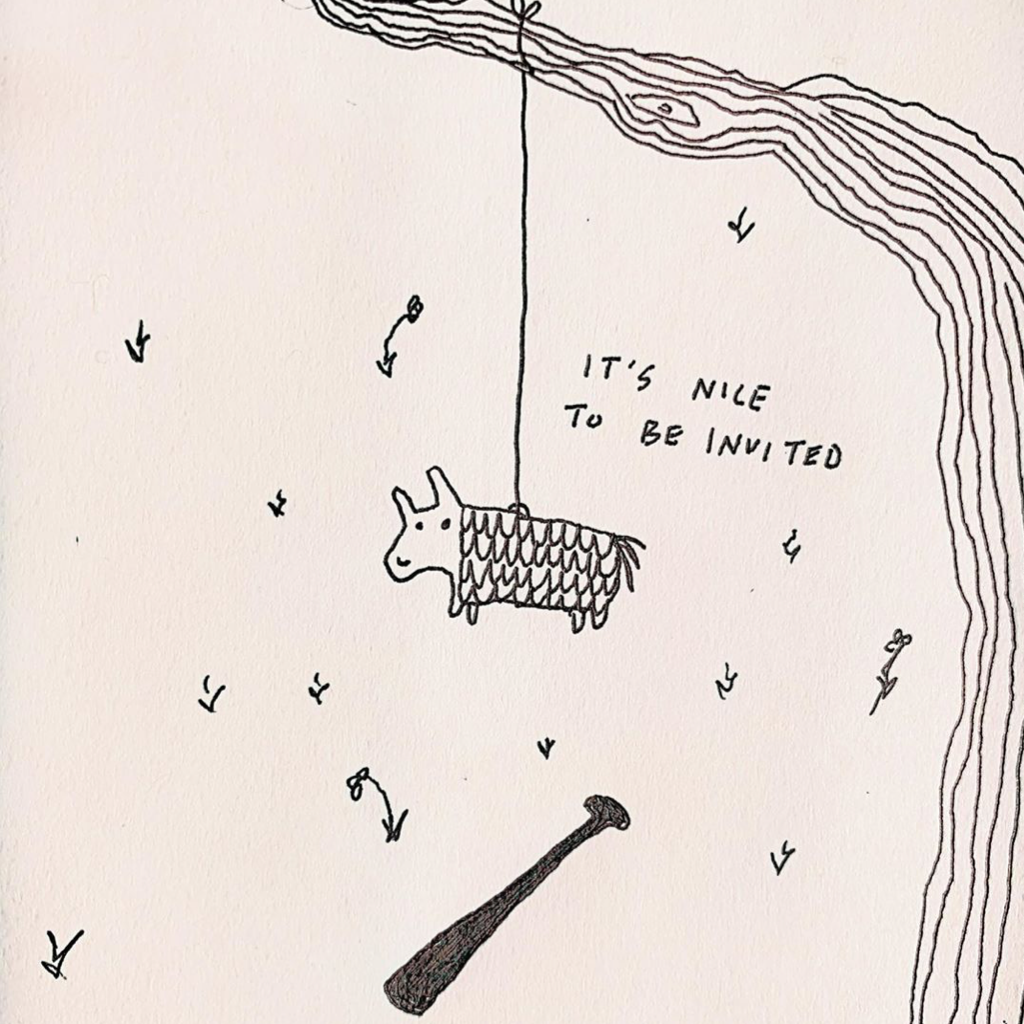 IT'S NICE
TO BE INVITED